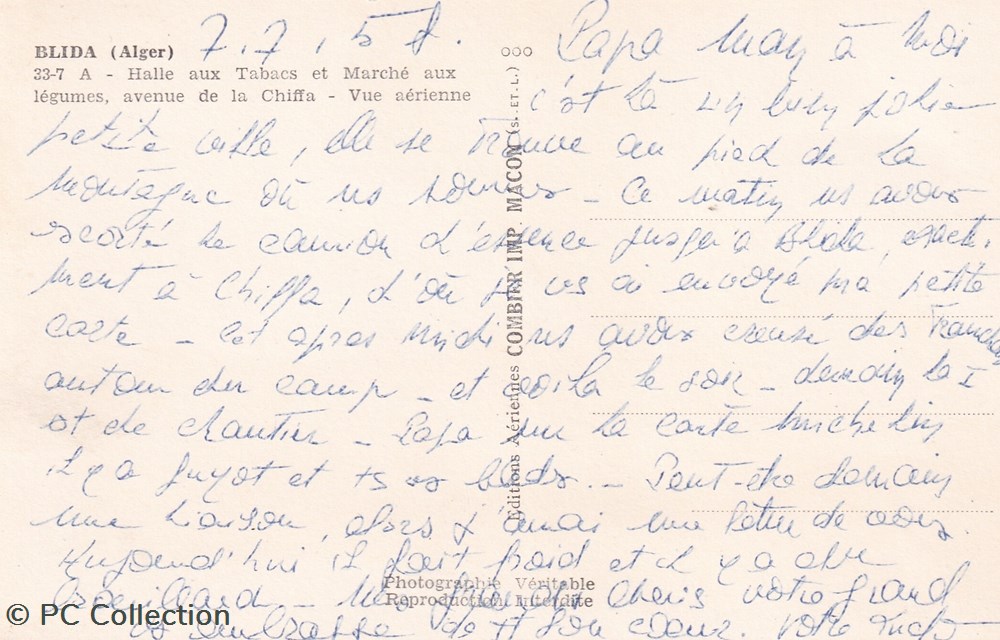 BLIDA (Alger)
33-7 A - Halle aux Tabacs et Marché aux
légumes, avenue de la Chiffa - Vue aérienne
ooo
Editions Aériennes COMBIER IMP. MACON (S. ET L.)
Photographie Véritable
Reproduction Interdite
7.7.58.
Papa Mam à Moi
c'est là un bien jolie
petite ville, elle se trouve au pied de la
montagne où ns sommes - Ce matin ns avons
escorté le camion d'essence jusqu'à Blida, exacte-
ment à Chiffa, d'où je vs ai envoyé ma petite
carte - Cet après midi ns avons creusé des tranchées
autour du camp - et voilà le soir - demain la
et de chantier - Papa sur la carte Michelin
il y a Guyot et ts - Peut-être demain
une liaison, alors j'aurai une lettre de vous.
Aujourd'hui il fait froid et il y a du
brouillard - chéris votre grand
vs embrasse de tt son coeur. Votre
© PC Collection